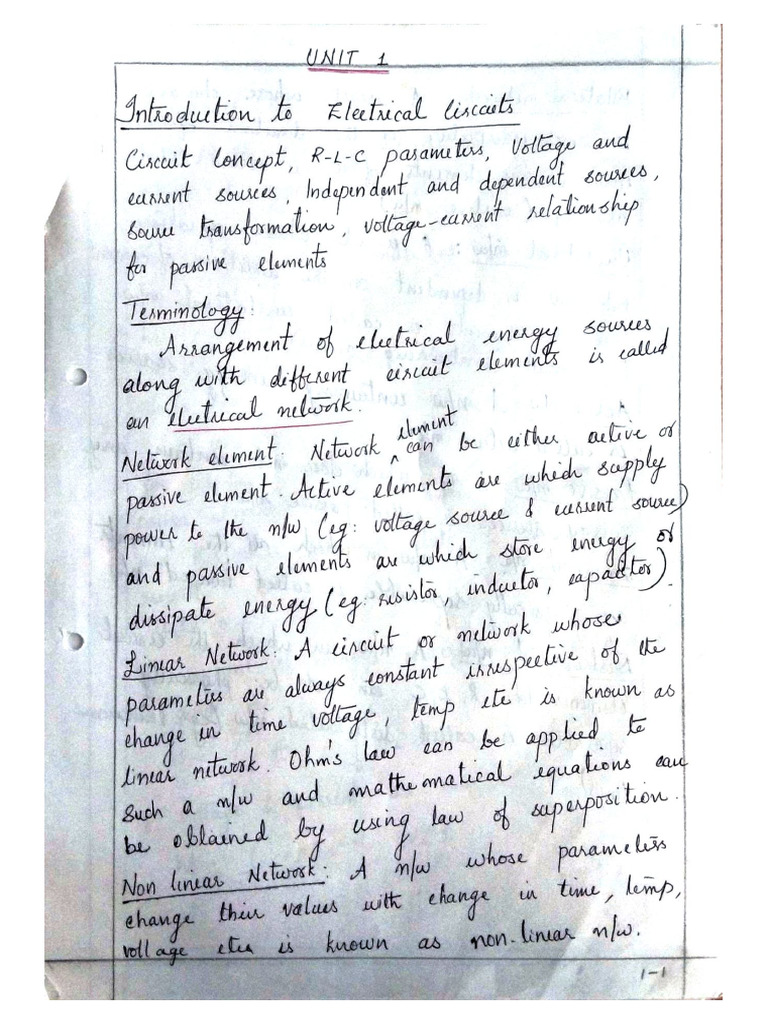 UNIT 1
Introduction to Electrical Circuits
Circuit Concept, R-L-C parameters, Voltage and
current sources, Independent and dependent sources,
Source transformation, voltage-current relationship
for passive elements
Terminology:
Arrangement of electrical energy sources
along with different circuit elements is called
an electrical network.
Network element: Network element can be either active or
passive element. Active elements are which supply
power to the n/w (eg: voltage source & current source)
and passive elements are which store energy or
dissipate energy (eg: resistor, inductor, capacitor).
Linear Network: A circuit or network whose
parameters are always constant irrespective of the
change in time voltage, temp etc is known as
linear network. Ohm's law can be applied to
such a n/w and mathematical equations can
be obtained by using law of superposition.
Non linear Network: A n/w whose parameters
change their values with change in time, temp,
voltage etc is known as non-linear n/w.
1-1